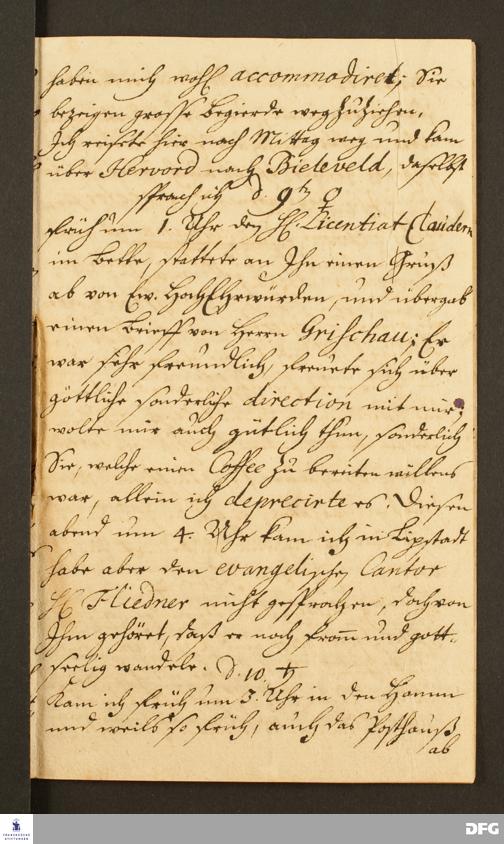 haben mich wohl accommodiret; Sie
bezeigen grosse begierde wegzuziehen.
Ich reisete hier nach Mittag weg und kam
über Hervord nach Bieleveld, daselbst
sprach ich d. 9t ♀
früh um 1. Uhr den H. Licentiat Clauder
im Bette, stattete an Ihn einen Gruß
ab von Ew. HochEhrwürden, und übergab
einen Brieff von Herrn Grischau; Er
war sehr freundlich, freuete sich über
göttliche sonderliche direction mit mir,
wolte mir auch gütlich thun, sonderlich
Sie, welche einen Coffee zu bereiten willens
war, allein ich deprecirte es. Diesen
abend um 4. Uhr kam ich in Lipstadt
habe aber den evangelischen Cantor
H. Fliedner nicht gesprochen, doch von
Ihm gehöret, daß er noch from und gott-
seelig wandele. d. 10. ♄
Kam ich früh um 3. Uhr in den Hamm
und weils so früh, auch das Posthauß
ab
FRANCKESCHE STIFTUNGEN
DFG